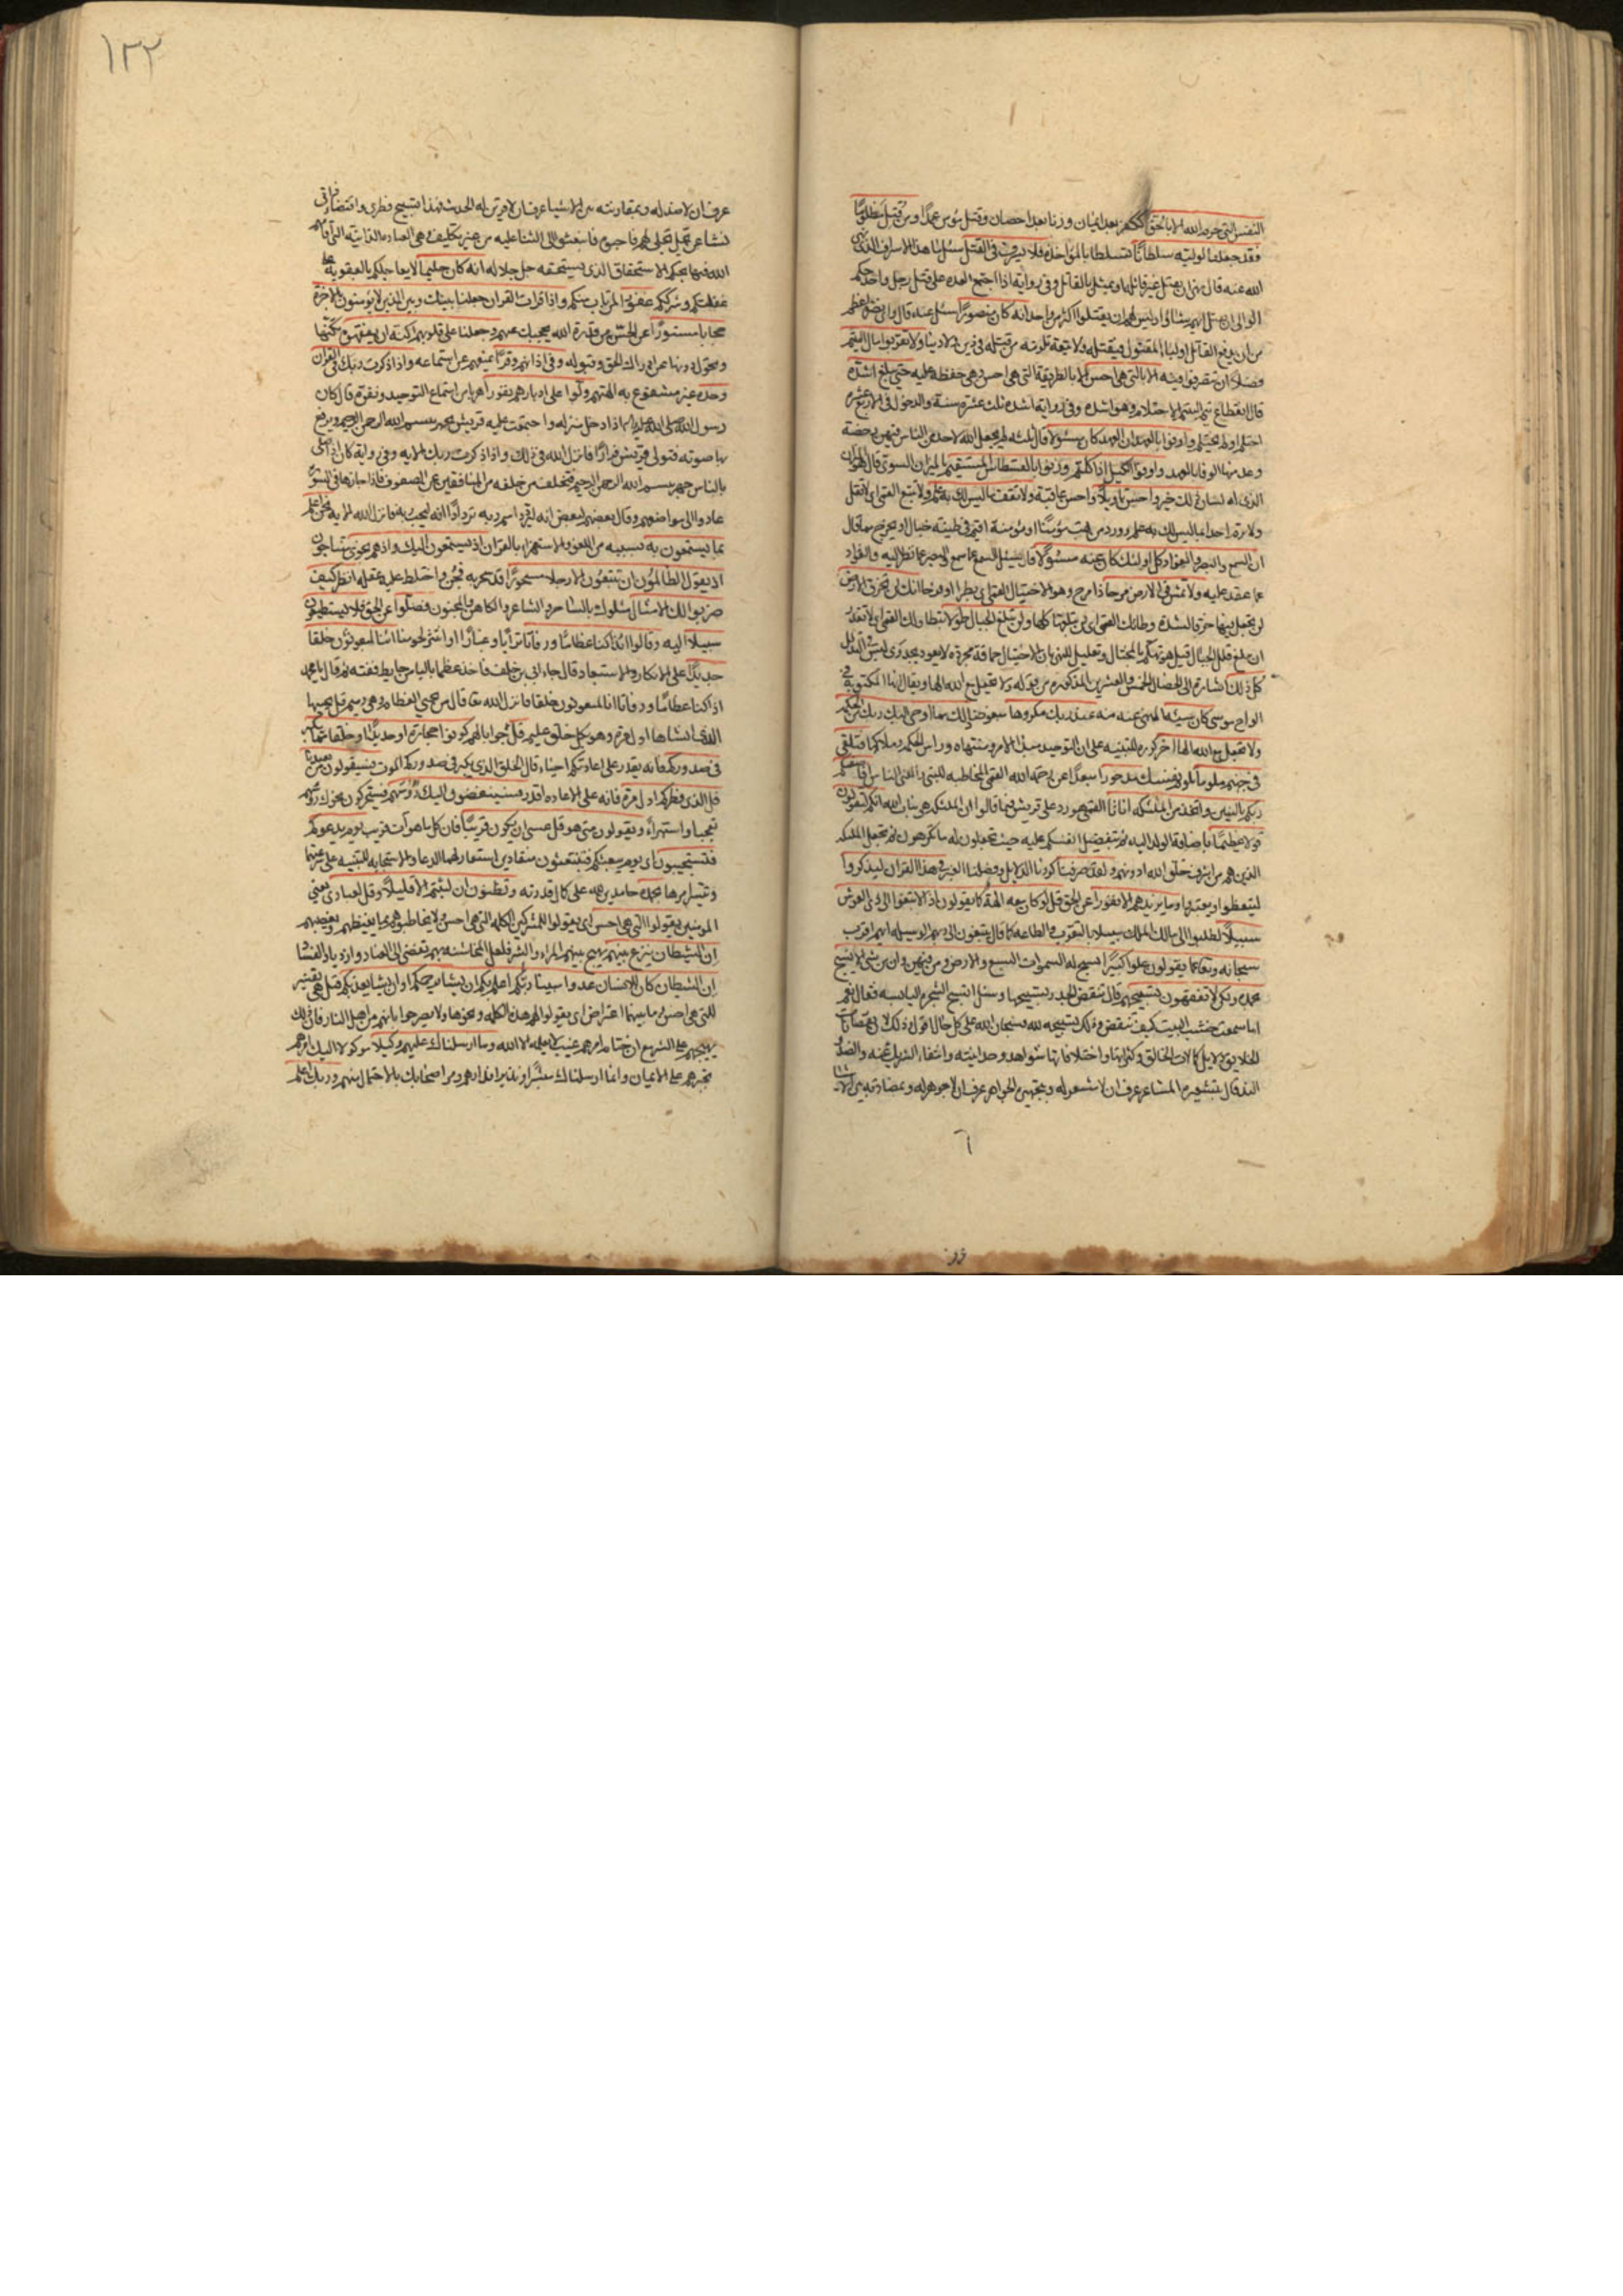 النفس التي حرم الله الا بالحق ككفر بعد ايمان وزنا بعد احصان وقتل مؤمن عمدا ومن قتل مظلوما
فقد جعلنا لوليه سلطانا تسلطا بالمؤاخذة فلا يسرف في القتل سئل ما هذا الاسراف الذي نهى
الله عنه قال نهى ان يقتل غير قاتله او يمثل بالقاتل وفي رواية اذا اجتمع العدة على قتل رجل واحد حكم
الوالي ان يقتل ايهم شاؤا وليس لهم ان يقتلوا اكثر من واحد انه كان منصورا سئل عنه قال واي نصرة اعظم
من ان يدفع القاتل اولياء المقتول فيقتله ولا تبعة تلزمه من قتله في دين ولا دنيا ولا تقربوا مال اليتيم
فضلا ان تتصرفوا فيه الا بالتي هي احسن الا بالطريقة التي هي احسن وهي حفظه عليه حتى يبلغ اشده
قال انقطاع يتم اليتيم الاحتلام وهو اشده وفي رواية اشده ثلث عشرة سنة والدخول في الاربع عشرة
احتلم او لم يحتلم واوفوا بالعهد ان العهد كان مسئولا قال ثلثه لم يجعل الله لاحد من الناس فيهن رخصة
وعد منها الوفا بالعهد واوفوا الكيل اذا كلتم وزنوا بالقسطاس المستقيم بالميزان السوي قال هو الميزان
الذي له لسان ذلك خير واحسن تاويلا واحسن عاقبة ولا تقف ما ليس لك به علم ولا تتبع القمي اي لا تقل
ولا ترم احدا بما ليس لك به علم وورد من بهت مؤمنا او مؤمنة اقيم في طينة خبال او يخرج مما قال
ان السمع والبصر والفؤاد كل اولئك كان عنه مسئولا قال يسئل السمع عما سمع والبصر عما نظر اليه والفؤاد
عما عقد عليه ولا تمش في الارض مرحا ذا مرح وهو الاختيال القمي اي بطرا او فرحا انك لن تخرق الارض
لن تجعل فيها خرقا لشدة وطاتك القمي اي لن تبلغها كلها ولن تبلغ الجبال طولا بتطاولك القمي اي لا تقدر
ان تبلغ قلل الجبال قيل هو تهكم بالمختال وتعليل للنهي بان الاختيال حماقة مجردة لا يعود بجدوى ليس في التذلل
كل ذلك اشارة الى الخصال الخمس والعشرين المذكورة من قوله ولا تجعل مع الله الها ويقال انها المكتوبة في
الواح موسى كان سيئه المنهي عنه منه عند ربك مكروها مبغوضا ذلك مما اوحى اليك ربك من الحكمة
ولا تجعل مع الله الها اخر كرره للتنبيه على ان التوحيد مبدا الامر ومنتهاه وراس الحكمة وملاكها فتلقى
في جهنم ملوما تلوم نفسك مدحورا مبعدا عن رحمة الله القمي المخاطبة للنبي والمعنى للناس افاصفيكم
ربكم بالبنين واتخذ من الملئكة اناثا القمي هو رد على قريش فيما قالوا ان الملئكة هي بنات الله انكم لتقولون
قولا عظيما باضافة الولد اليه ثم بتفضيل انفسكم عليه حيث تجعلون له ما تكرهون ثم تجعل الملئكة
الذين هم من اشرف خلق الله ادونهم ولقد صرفنا كررنا الدلايل وفصلنا العبر في هذا القران ليذكروا
ليتعظوا ويعتبروا وما يزيدهم الا نفورا عن الحق قل لو كان معه الهة كما يقولون اذا لابتغوا الى ذي العرش
سبيلا لطلبوا الى مالك الملك سبيلا بالتقرب والطاعة كما قال يبتغون الى ربهم الوسيلة ايهم اقرب
سبحانه وتعالى عما يقولون علوا كبيرا تسبح له السموات السبع والارض ومن فيهن وان من شئ الا يسبح
بحمده ولكن لا تفقهون تسبيحهم قال تنقض الجدر تسبيحها وسئل اتسبح الشجرة اليابسة فقال نعم
اما سمعت خشب البيت كيف تنقض وذلك تسبيحه لله فسبحان الله على كل حال اقول وذلك لان نقصانات
الخلايق دلايل كمالات الخالق وكثراتها واختلافاتها شواهد وحدانيته وانتفاء الشريك عنه والضد
الند قال بتشعيره المشاعر عرف ان لا مشعر له وبتجهيره الجواهر عرف ان لا جوهر له وبمضادته بين الاشياء
١٢٢
عرف ان لا ضد له وبمقارنته بين الاشيا عرف ان لا قرين له الحديث فهذا تسبيح فطري واقتضاء ذاتي
نشا عن تجل تجلى لهم فاحبوه فانبعثوا الى الثنا عليه من غير تكليف وهي العبادة الذاتية التي اقامهم
الله فيها بحكم الاستحقاق الذي يستحقه جل جلاله انه كان حليما لا يعاجلكم بالعقوبة على
غفلتكم وشرككم غفورا لمن تاب منكم واذا قرات القران جعلنا بينك وبين الذين لا يؤمنون بالاخرة
حجابا مستورا عن الحس من قدرة الله يحجبك عنهم وجعلنا على قلوبهم اكنة ان يفقهوه تكنها
وتحول دونها عن ادراك الحق وقبوله وفي اذانهم وقرا يمنعهم عن استماعه واذا ذكرت ربك في القران
وحده غير مشفوع به الهتهم ولوا على ادبارهم نفورا هربا من استماع التوحيد ونفرة قال كان
رسول الله صلى الله عليه واله اذا دخل منزله واجتمعت عليه قريش يجهر ببسم الله الرحمن الرحيم ويرفع
بها صوته فتولى قريش فرارا فانزل الله في ذلك واذا ذكرت ربك الاية وفي رواية كان اذا صلى
بالناس جهر ببسم الله الرحمن الرحيم فتخلف من خلفه من المنافقين عن الصفوف فاذا جازها في السورة
عادوا الى مواضعهم وقال بعضهم لبعض انه ليردد اسم ربه تردادا انه ليحب ربه فانزل الله الاية نحن اعلم
بما يستمعون به بسببه من اللغو والاستهزاء بالقران اذ يستمعون اليك واذ هم نجوى متناجون
اذ يقول الظالمون ان تتبعون الا رجلا مسحورا قد سحر به فجن واختلط عليه عقله انظر كيف
ضربوا لك الامثال مثلوك بالساحر والشاعر والكاهن والمجنون فضلوا عن الحق فلا يستطيعون
سبيلا اليه وقالوا ائذا كنا عظاما ورفاتا ترابا وغبارا او انتثر لحومنا ائنا لمبعوثون خلقا
جديدا على الانكار والاستبعاد قال جاء ابي بن خلف فاخذ عظما باليا من حايط ففته ثم قال يا محمد
اذا كنا عظاما ورفاتا ائنا لمبعوثون خلقا فانزل الله تعالى قال من يحيي العظام وهي رميم قل يحييها
الذي انشاها اول مرة وهو بكل خلق عليم قل جوابا لهم كونوا حجارة او حديدا او خلقا مما يكبر
في صدوركم فانه يقدر على اعادتكم احياء قال الخلق الذي يكبر في صدوركم الموت فسيقولون من يعيدنا
قل الذي فطركم اول مرة فانه على الاعادة اقدر فسينغضون اليك رؤسهم فسيحركون نحوك رؤسهم
تعجبا واستهزاء ويقولون متى هو قل عسى ان يكون قريبا فان كل ما هو آت قريب يوم يدعوكم
فتستجيبون اي يوم يبعثكم فتنبعثون منقادين استعار لهما الدعا والاستجابة للتنبيه على سرعتهما
وتيسر امرهما بحمده حامدين لله على كمال قدرته وتظنون ان لبثتم الا قليلا وقل لعبادي يعني
المؤمنين يقولوا التي هي احسن اي يقولوا للمشركين الكلمة التي هي احسن ولا يخاطبوهم بما يغيظهم ويغضبهم
ان الشيطان ينزغ بينهم يهيج بينهم المراء والشر فلعل المخاشنة بهم تفضي الى العناد وازدياد الفساد
ان الشيطان كان للانسان عدوا مبينا ربكم اعلم بكم ان يشا يرحمكم او ان يشا يعذبكم قيل هي تفسير
للتي هي احسن وما بينهما اعتراض اي يقولوا لهم هذه الكلمة ونحوها ولا يصرحوا بانهم من اهل النار فان ذلك
يهيجهم على الشر مع ان ختام امرهم غيب لا يعلمه الا الله وما ارسلناك عليهم وكيلا موكولا اليك امرهم
تجبرهم على الايمان وانما ارسلناك مبشرا ونذيرا فدارهم ومر اصحابك بالاحتمال منهم وربك اعلم